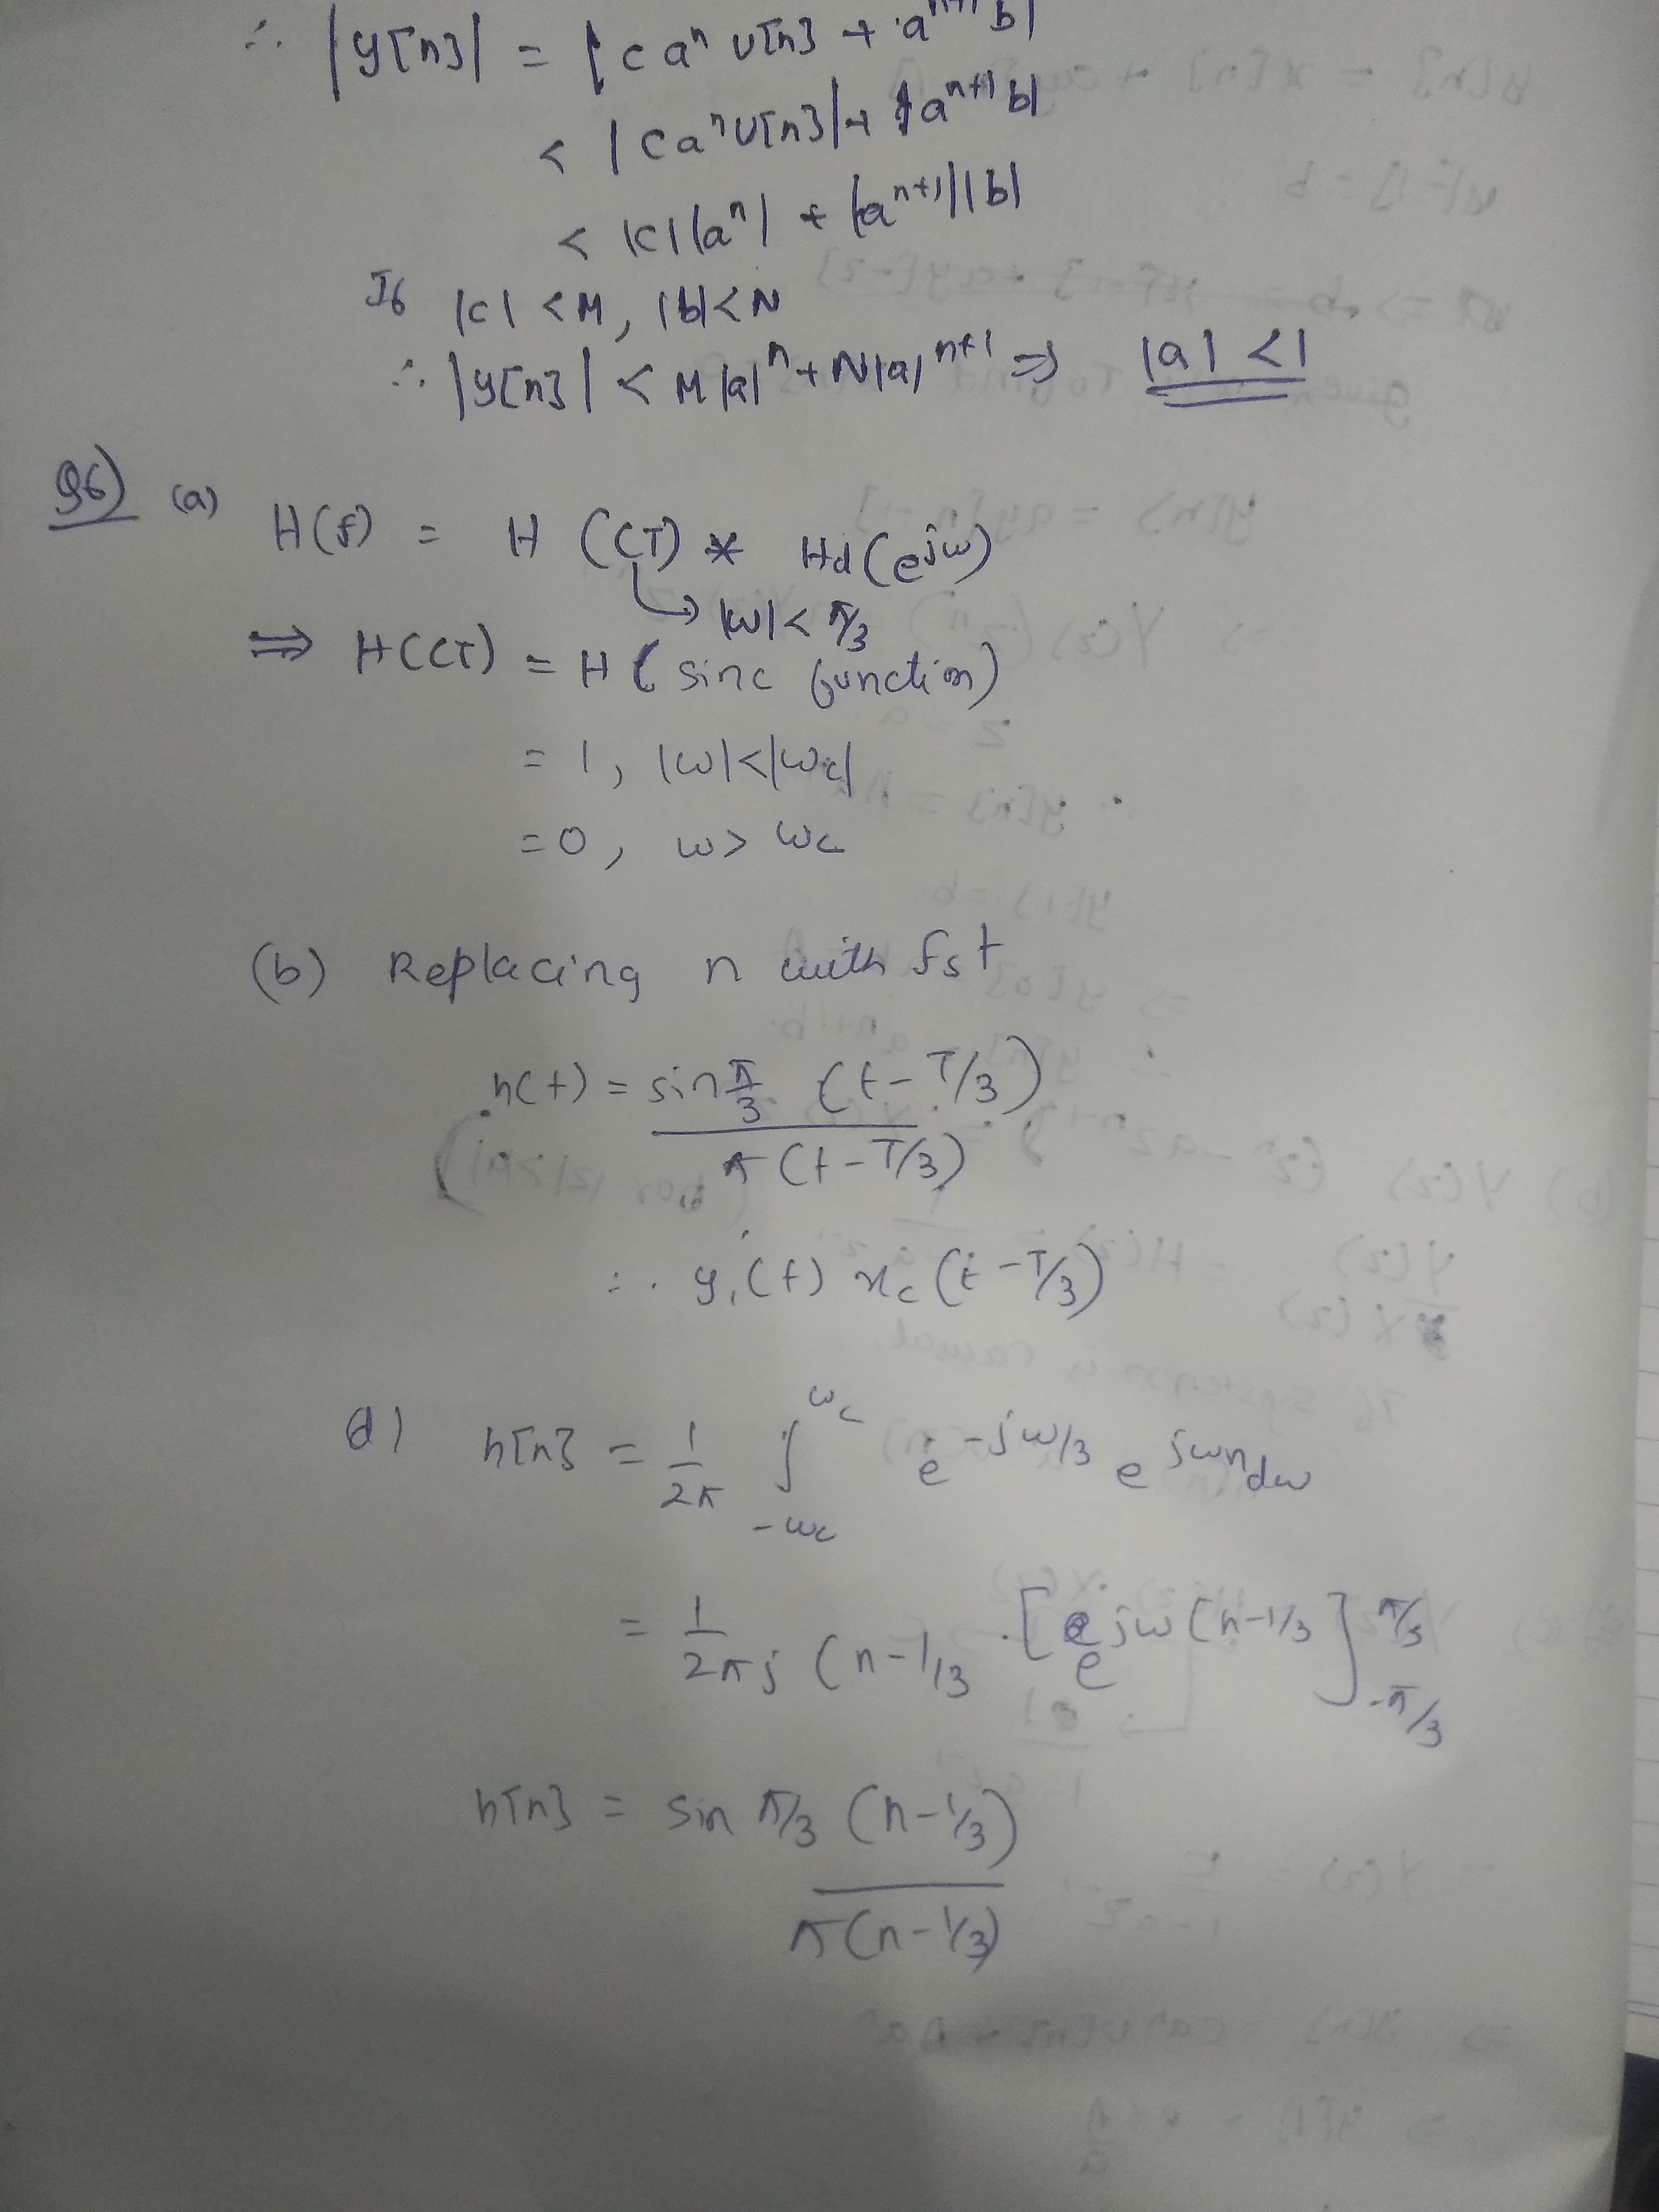 ∴ |y[n]| = |c aⁿ u[n] + aⁿ⁺¹ b|
< |c aⁿ u[n]| + |aⁿ⁺¹ b|
< |c| |aⁿ| + |aⁿ⁺¹| |b|
If |c| < M, |b| < N
∴ |y[n]| < M |a|ⁿ + N |a|ⁿ⁺¹ ⇒ |a| < 1
Q6) (a) H(f) = H (CT) * Hd (e^jω)
↳ |ω| < π/3
⇒ H(CT) = H (sinc function)
= 1, |ω| < |ωc|
= 0, ω > ωc
(b) Replacing n with fst
h(t) = sin π/3 (t - T/3)
π (t - T/3)
∴ y₁(t) xc (t - T/3)
d) h[n] = 1/2π ∫_-ωc^ωc e^-jω/3 e^jωn dω
= 1/2πj (n - 1/3 · [e^jω(n - 1/3]_-π/3^π/3
h[n] = sin π/3 (n - 1/3)
π (n - 1/3)